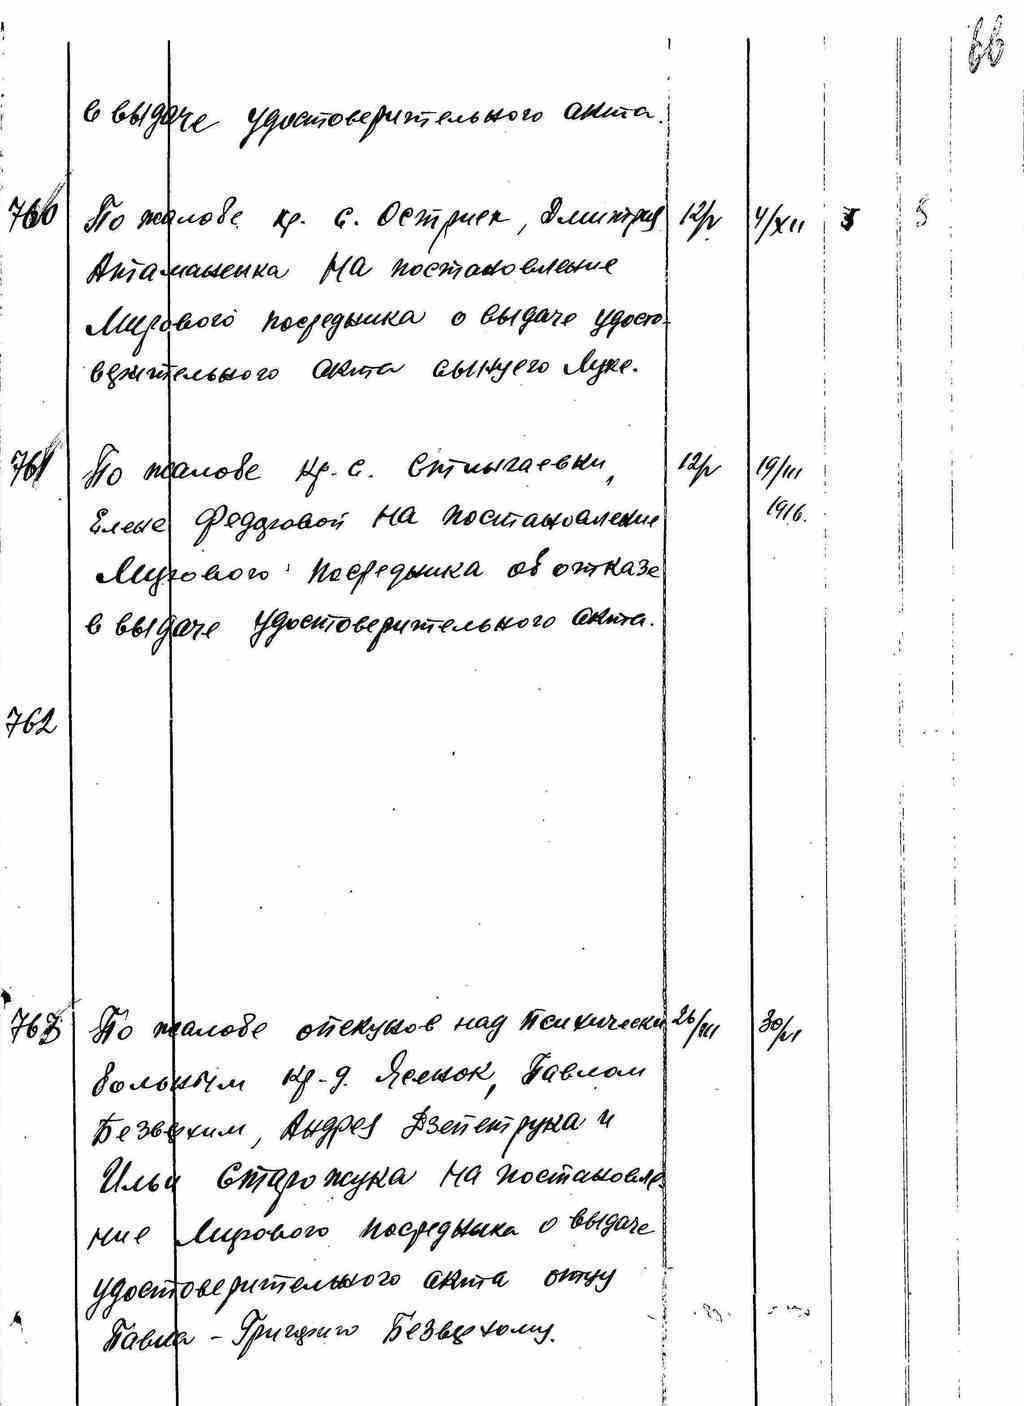 66
в выдаче удостоверительного акта.
760 По жалобе кр. с. Остриек, Дмитрия 12/V 4/XII 5 5
Атаманенка на постановление
Мирового посредника о выдаче удосто-
верительного акта сыну его Луке.
761 По жалобе кр. с. 12/V 19/III
Елене Федоровой на постановление 1916.
Мирового посредника об отказе
в выдаче удостоверительного акта.
762
763 По жалобе опекунов над психически 26/VII 30/VI
больным кр-д. Ясенок, Павлом
Безверхим, Андрея Дзепетрука и
Ильи Сторожука на постановле-
ние Мирового посредника о выдаче
удостоверительного акта отцу
Павла - Григорию Безверхому.